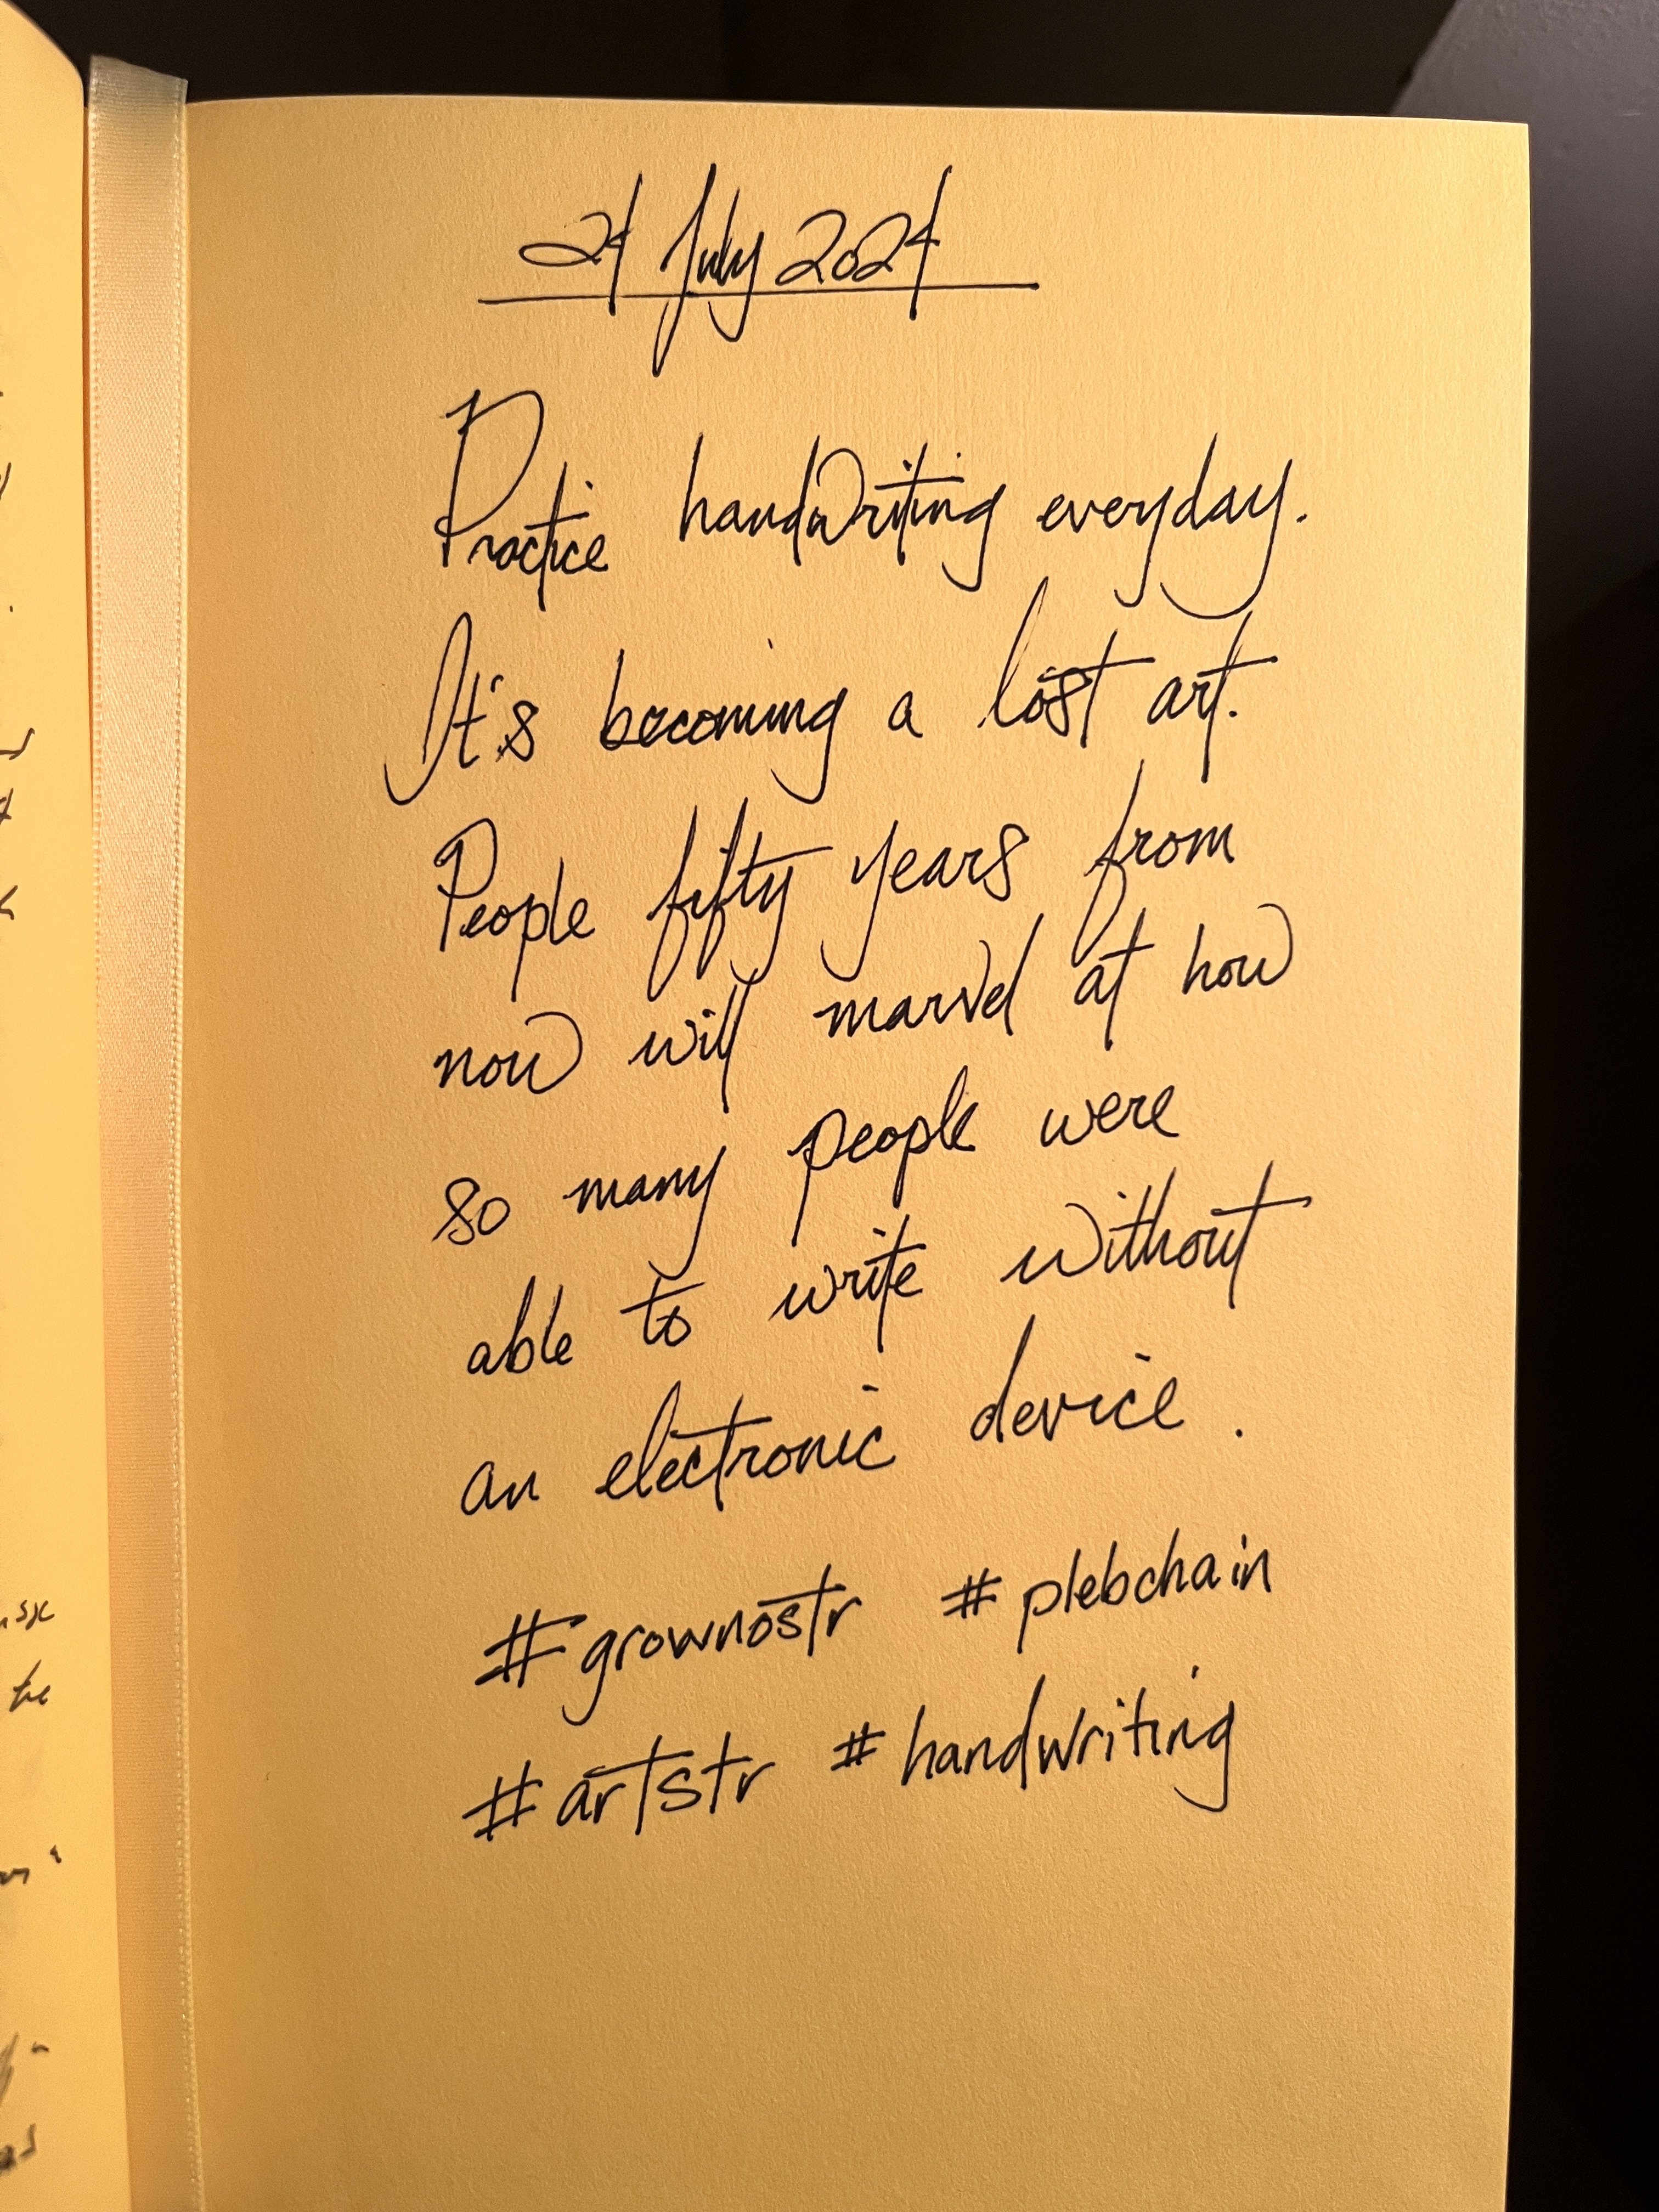 24 July 2024
Practice handwriting everyday.
It's becoming a lost art.
People fifty years from
now will marvel at how
so many people were
able to write without
an electronic device.
#grownostr #plebchain
#artstr #handwriting